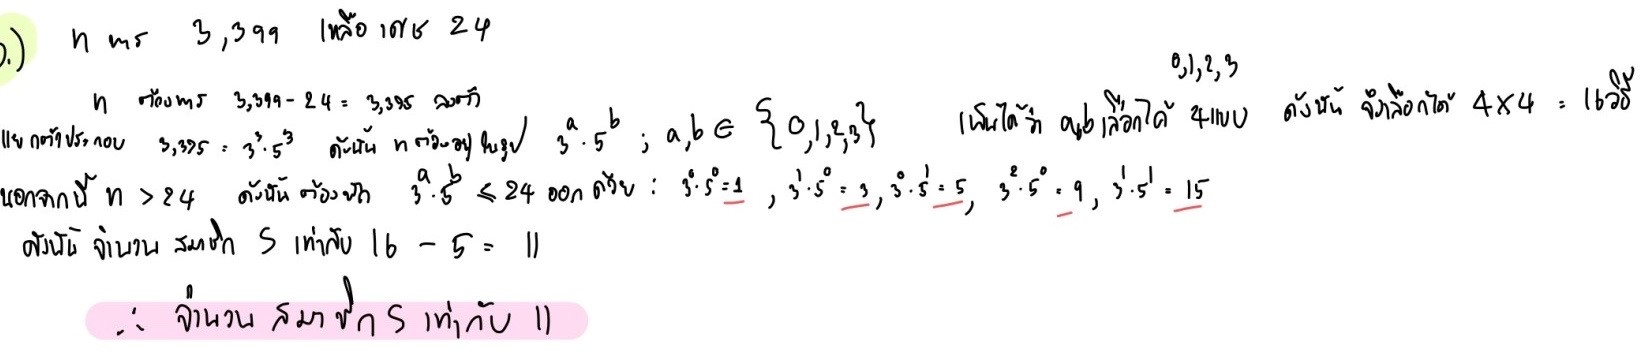 ข.) n หาร 3,399 เหลือเศษ 24
n ต้องหาร 3,399 - 24 = 3,375 ลงตัว
แยกตัวประกอบ 3,375 = 3³·5³ ดังนั้น n ต้องอยู่ในรูป 3ᵃ·5ᵇ ; a,b ∈ {0,1,2,3} เห็นได้ว่า a,b เลือกได้ 4 แบบ 0,1,2,3 ดังนั้น จึงเลือกได้ 4×4 = 16 วิธี
นอกจากนี้ n > 24 ดังนั้น ต้องตัด 3ᵃ·5ᵇ ≤ 24 ออกด้วย : 3⁰·5⁰ = 1 , 3¹·5⁰ = 3 , 3⁰·5¹ = 5 , 3²·5⁰ = 9 , 3¹·5¹ = 15
ดังนั้น จำนวน สมาชิก S เท่ากับ 16 - 5 = 11
∴ จำนวน สมาชิก S เท่ากับ 11